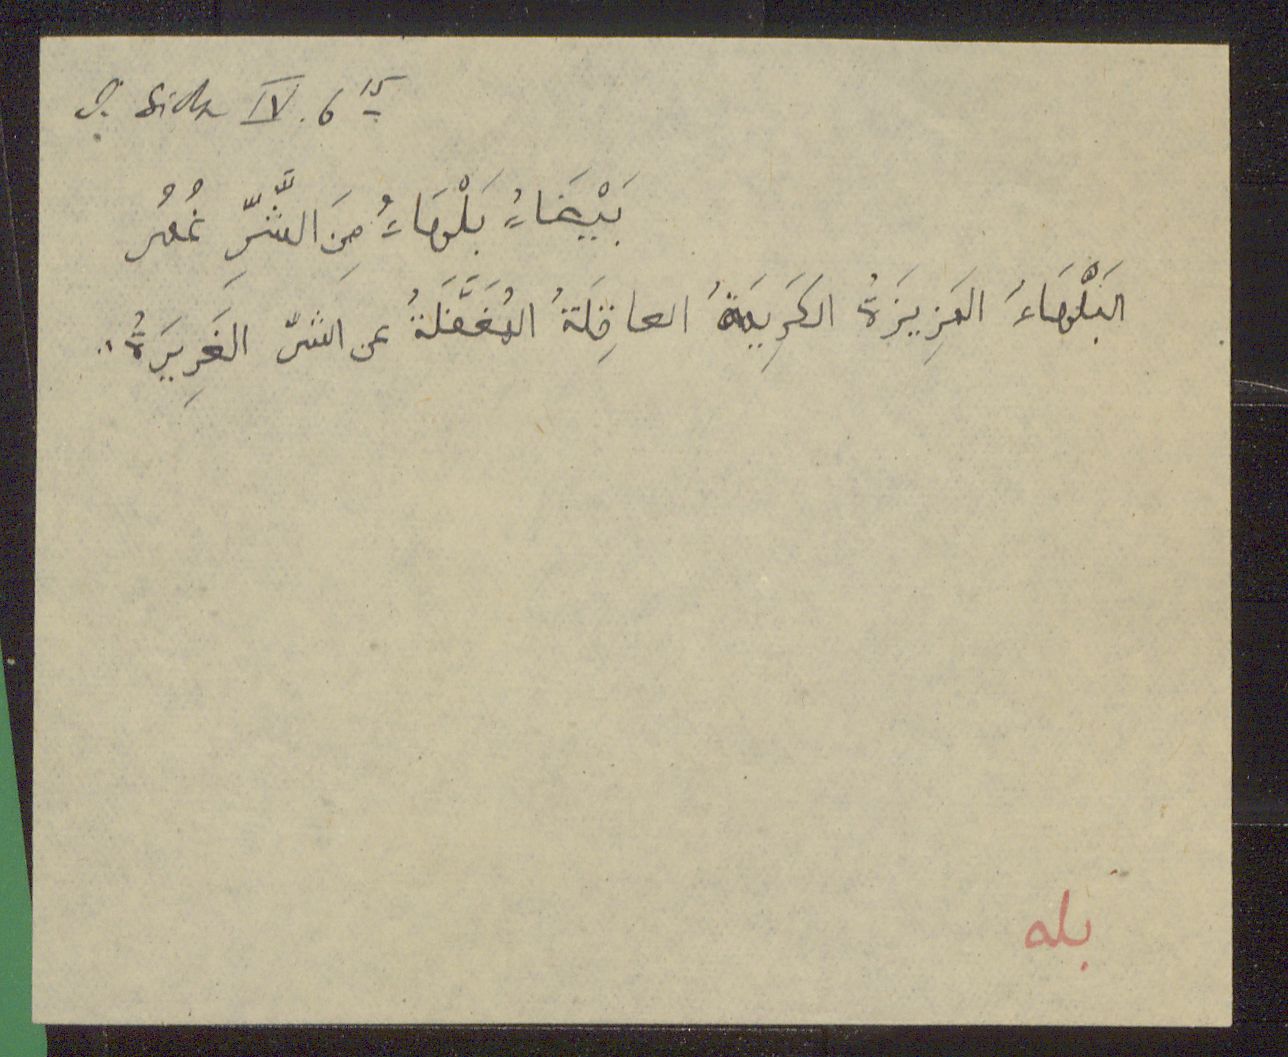 I. Sidh IV. 6 15
بَيْضَاءُ بَلْهَاءُ مِنَ الشَّرِّ غُمُر
البَلْهَاءُ العَزِيزَةُ الكَرِيمَةُ العاقِلَةُ المُغَفَّلَةُ عن الشرّ الغَرِيرَةُ..
بله